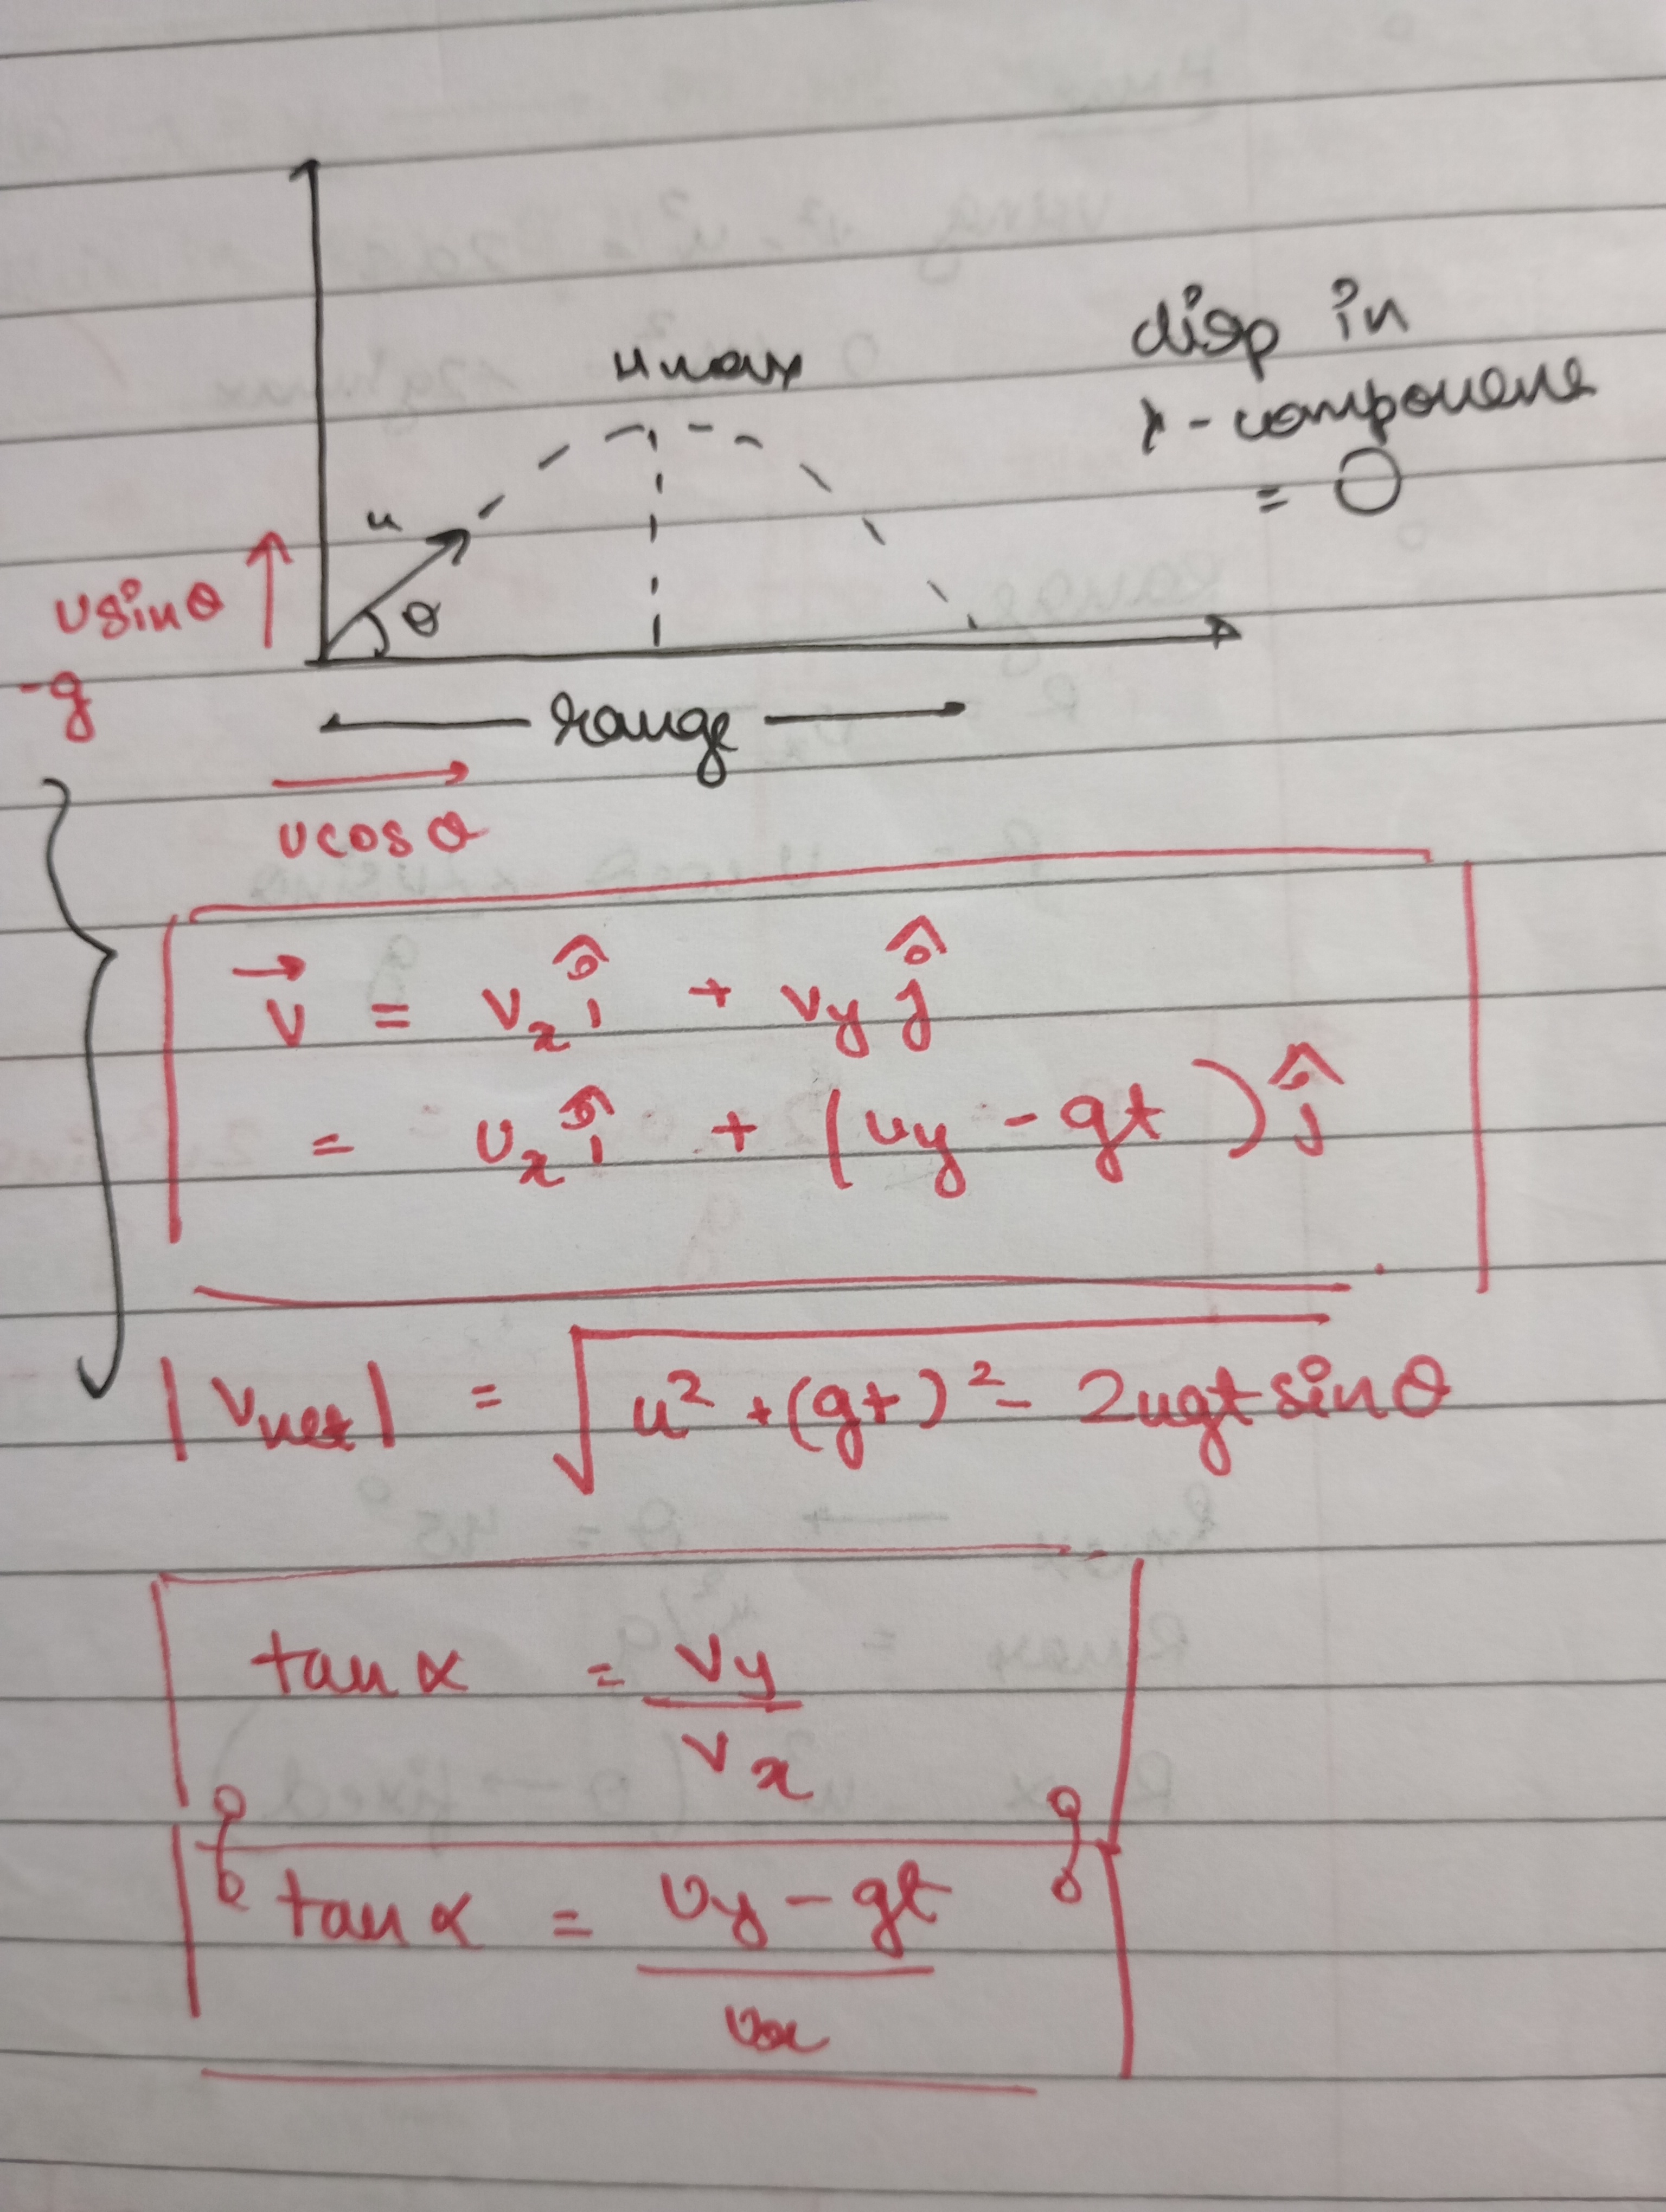 Hmax
disp in
y-component
= 0
u
θ
usinθ
-g
range
ucosθ
v⃗ = vₓ î + vy ĵ
= uₓ î + (uy - gt) ĵ
|vnet| = √(u² + (gt)² - 2ugt sinθ)
tan α = vy / vₓ
tan α = (uy - gt) / uₓ